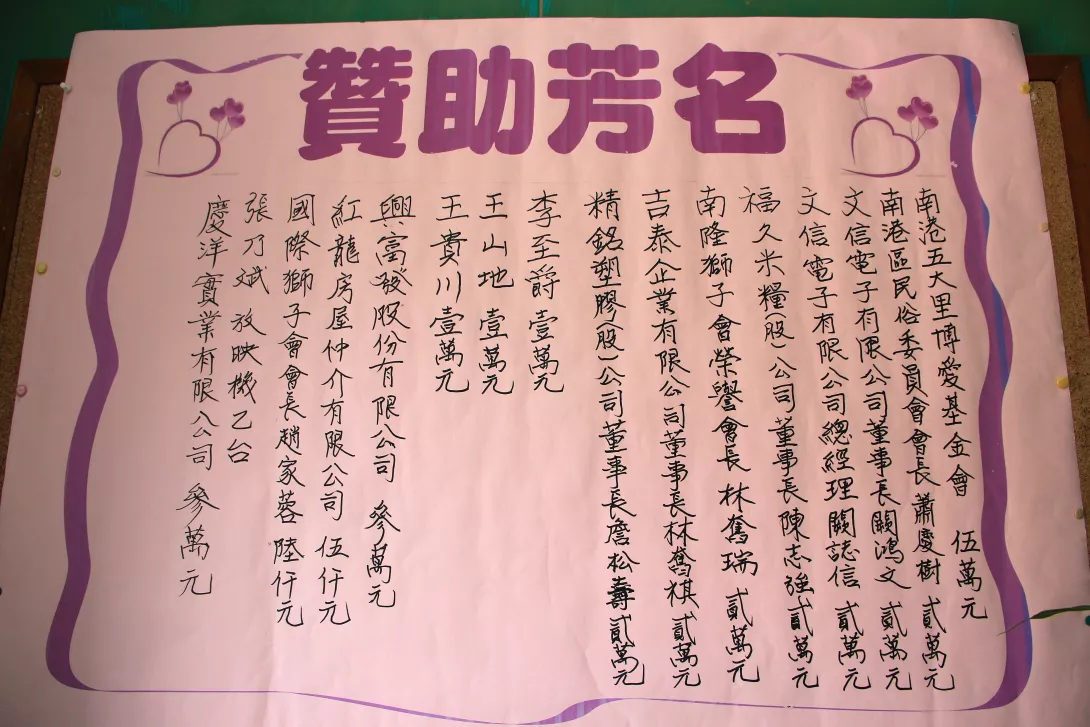 贊助芳名
南港五大里博愛基金會 伍萬元
南港區民俗委員會會長蕭慶樹 貳萬元
文信電子有限公司董事長闕鴻文 貳萬元
文信電子有限公司總經理闕誌信 貳萬元
福久米糧(股)公司董事長陳志強貳萬元
南隆獅子會榮譽會長林奮瑞 貳萬元
吉泰企業有限公司董事長林奮棋 貳萬元
精銘塑膠(股)公司董事長詹松壽貳萬元
李至爵 壹萬元
王山地 壹萬元
王貴川壹萬元
興富發股份有限公司 參萬元
紅龍房屋仲介有限公司 伍仟元
國際獅子會會長趙家蓉 陸仟元
張乃斌 放映機乙台
慶洋實業有限公司 參萬元